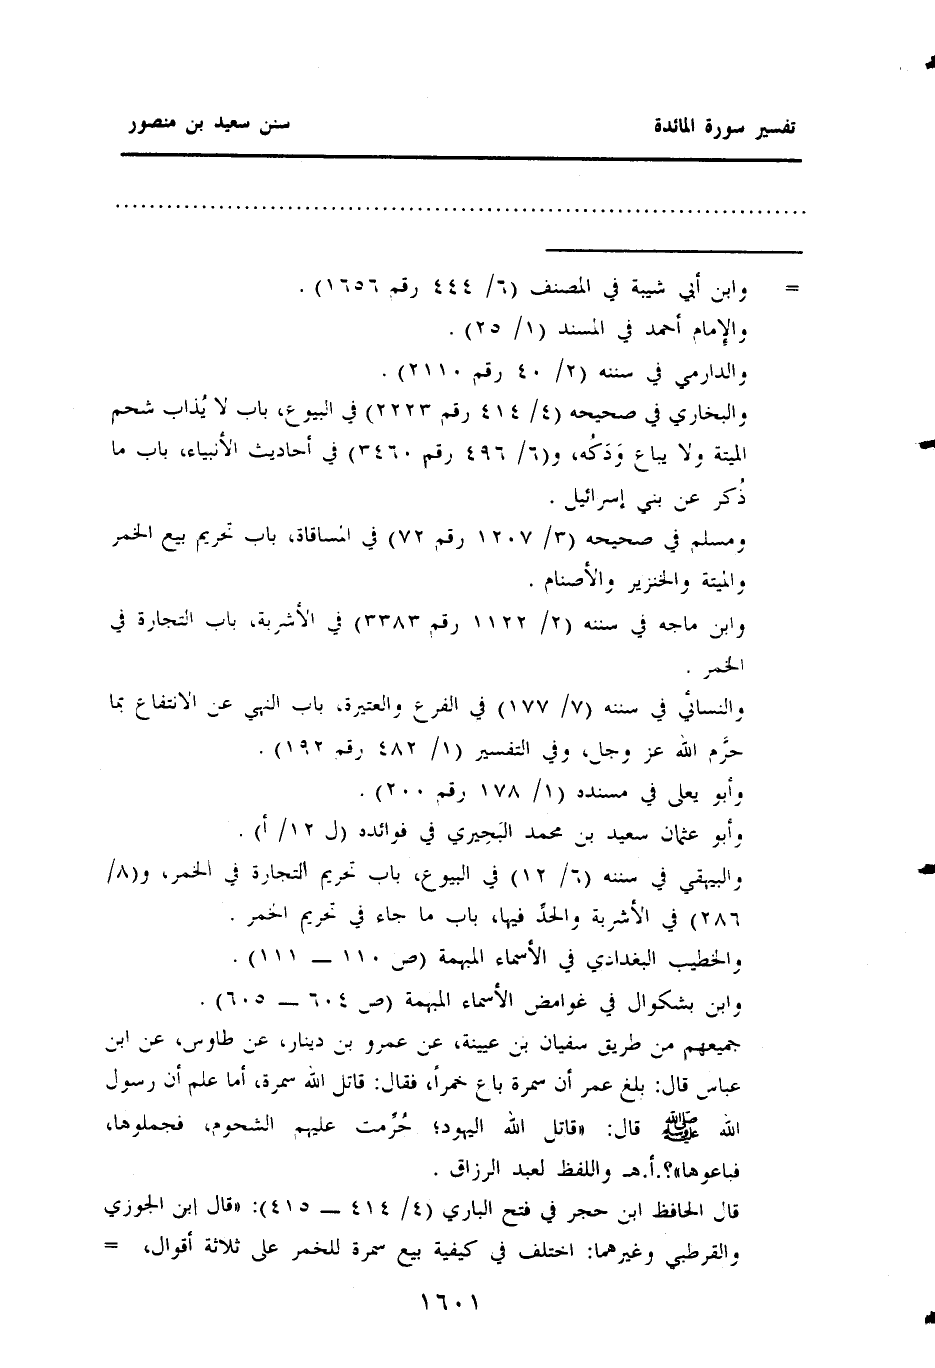 تفسير سورة المائدة سنن سعيد بن منصور
................................................................................
= وابن أبي شيبة في المصنف (٦/ ٤٤٤ رقم ١٦٥٦) .
والإمام أحمد في المسند (١/ ٢٥) .
والدارمي في سننه (٢/ ٤٠ رقم ٢١١٠) .
والبخاري في صحيحه (٤/ ٤١٤ رقم ٢٢٢٣) في البيوع، باب لا يُذاب شحم
الميتة ولا يباع وَدَكُه، و(٦/ ٤٩٦ رقم ٣٤٦٠) في أحاديث الأنبياء، باب ما
ذُكر عن بني إسرائيل .
ومسلم في صحيحه (٣/ ١٢٠٧ رقم ٧٢) في المساقاة، باب تحريم بيع الخمر
والميتة والخنزير والأصنام .
وابن ماجه في سننه (٢/ ١١٢٢ رقم ٣٣٨٣) في الأشربة، باب التجارة في
الخمر .
والنسائي في سننه (٧/ ١٧٧) في الفرع والعتيرة، باب النهي عن الانتفاع بما
حرَّم الله عز وجل، وفي التفسير (١/ ٤٨٢ رقم ١٩٢) .
وأبو يعلى في مسنده (١/ ١٧٨ رقم ٢٠٠) .
وأبو عثمان سعيد بن محمد البَحِيري في فوائده (ل ١٢/ أ) .
والبيهقي في سننه (٦/ ١٢) في البيوع، باب تحريم التجارة في الخمر، و(٨/
٢٨٦) في الأشربة والحدِّ فيها، باب ما جاء في تحريم الخمر .
والخطيب البغدادي في الأسماء المبهمة (ص ١١٠ ــ ١١١) .
وابن بشكوال في غوامض الأسماء المبهمة (ص ٦٠٤ ــ ٦٠٥) .
جميعهم من طريق سفيان بن عيينة، عن عمرو بن دينار، عن طاوس، عن ابن
عباس قال: بلغ عمر أن سمرة باع خمراً، فقال: قاتل الله سمرة، أما علم أن رسول
الله ﷺ قال: «قاتل الله اليهود؛ حُرِّمت عليهم الشحوم، فجملوها،
فباعوها»؟.أ.هـ واللفظ لعبد الرزاق .
قال الحافظ ابن حجر في فتح الباري (٤/ ٤١٤ ــ ٤١٥): «قال ابن الجوزي
والقرطبي وغيرهما: اختلف في كيفية بيع سمرة للخمر على ثلاثة أقوال، =
١٦٠١